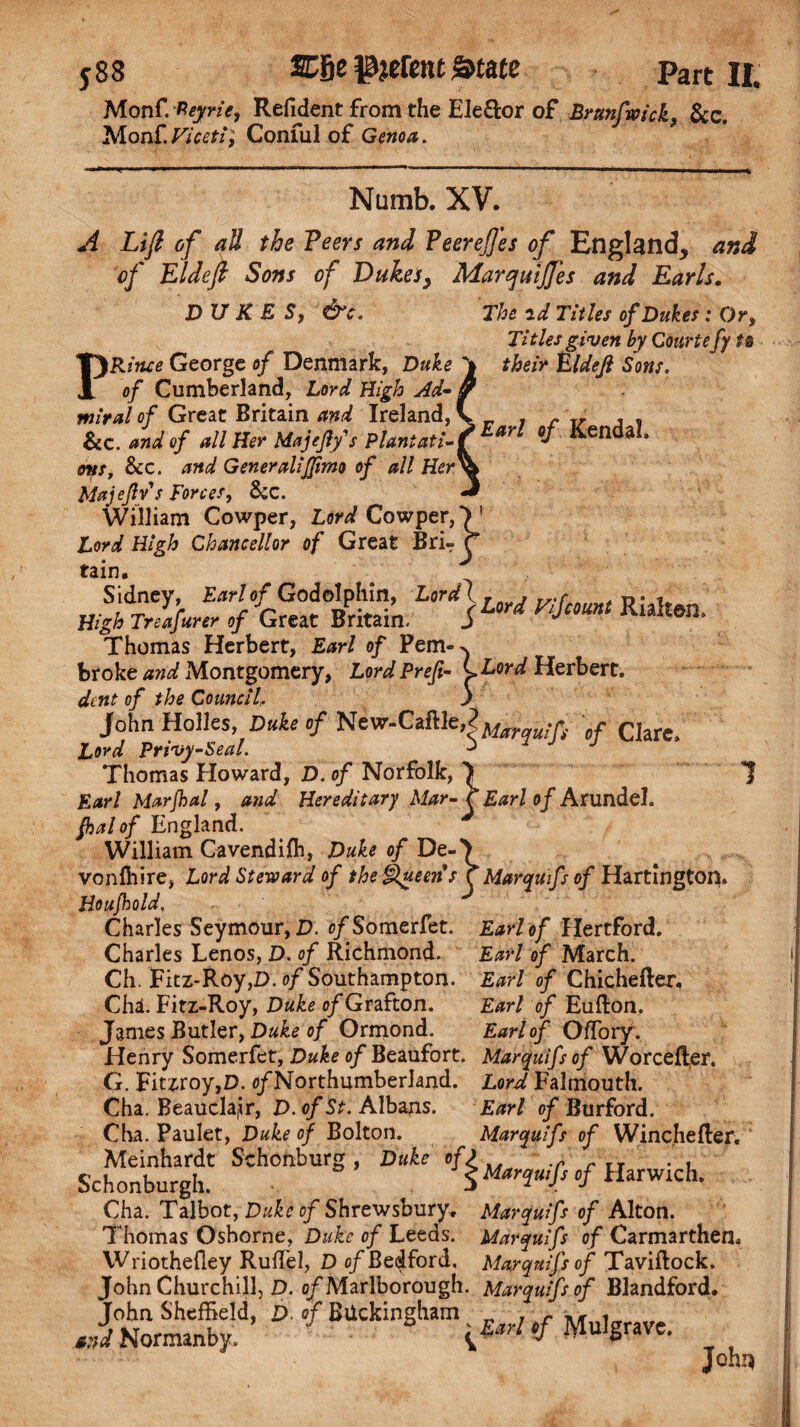 588 The Preſent State Part II.
Monſ. Beyrie, Reſident from the Elector of Brunſwick, &c.
Monſ. Viceti, Conſul of Genoa.
Numb. XV.
A Liſt of all the Peers and Peereſſes of England, and
of Eldeſt Sons of Dukes, Marquiſſes and Earls.
DUKES, &c. The 2d Titles of Dukes: Or,
Titles given by Courteſy to
PRince George of Denmark, Duke their Eldeſt Sons.
of Cumberland, Lord High Ad-
miral of Great Britain and Ireland,
&c. and of all Her Majeſty's Plantati- Earl of Kendal.
ons, &c. and Generaliſſimo of all Her
Majeſty's Forces, &c.
William Cowper, Lord Cowper,
Lord High Chancellor of Great Bri-
tain.
Sidney, Earl of Godolphin, Lord
High Treaſurer of Great Britain. Lord Viſcount Rialton.
Thomas Herbert, Earl of Pem-
broke and Montgomery, Lord Preſi- Lord Herbert.
dent of the Council.
John Holles, Duke of New-Caſtle, Marquiſs of Clare.
Lord Privy-Seal.
Thomas Howard, D. of Norfolk,
Earl Marſhal, and Hereditary Mar- Earl of Arundel.
ſhal of England.
William Cavendiſh, Duke of De-
vonſhire, Lord Steward of the Queen's Marquiſs of Hartington.
Houſhold.
Charles Seymour, D. of Somerſet. Earl of Hertford.
Charles Lenos, D. of Richmond. Earl of March.
Ch. Fitz-Roy, D. of Southampton. Earl of Chicheſter.
Cha. Fitz-Roy, Duke of Grafton. Earl of Euſton.
James Butler, Duke of Ormond. Earl of Oſſory.
Henry Somerſet, Duke of Beaufort. Marquiſs of Worceſter.
G. Fitzroy, D. of Northumberland. Lord Falmouth.
Cha. Beauclair, D. of St. Albans. Earl of Burford.
Cha. Paulet, Duke of Bolton. Marquiſs of Wincheſter.
Meinhardt Schonburg, Duke of
Schonburgh. Marquiſs of Harwich.
Cha. Talbot, Duke of Shrewsbury. Marquiſs of Alton.
Thomas Osborne, Duke of Leeds. Marquiſs of Carmarthen.
Wriotheſley Ruſſel, D of Bedford. Marquiſs of Taviſtock.
John Churchill, D. of Marlborough. Marquiſs of Blandford.
John Sheffield, D. of Buckingham
and Normanby. Earl of Mulgrave.
John